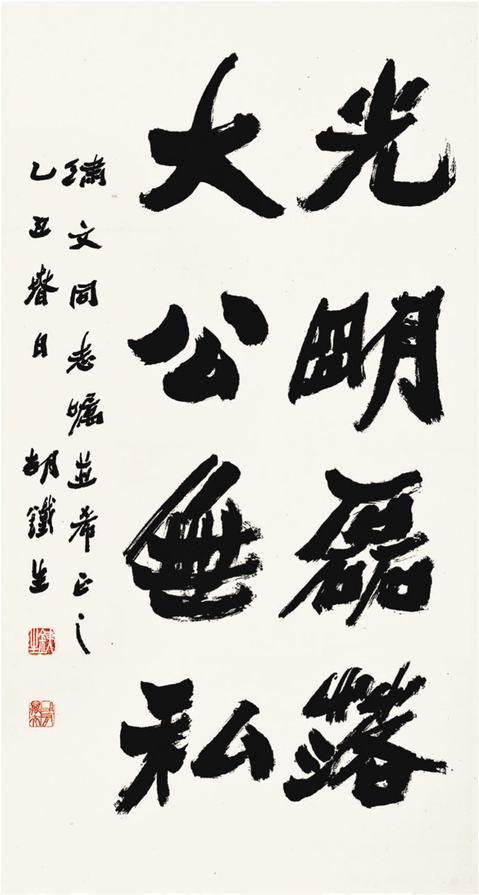 光明磊落
大公無私
文同志囑並希正之
乙丑春日 胡鐵生